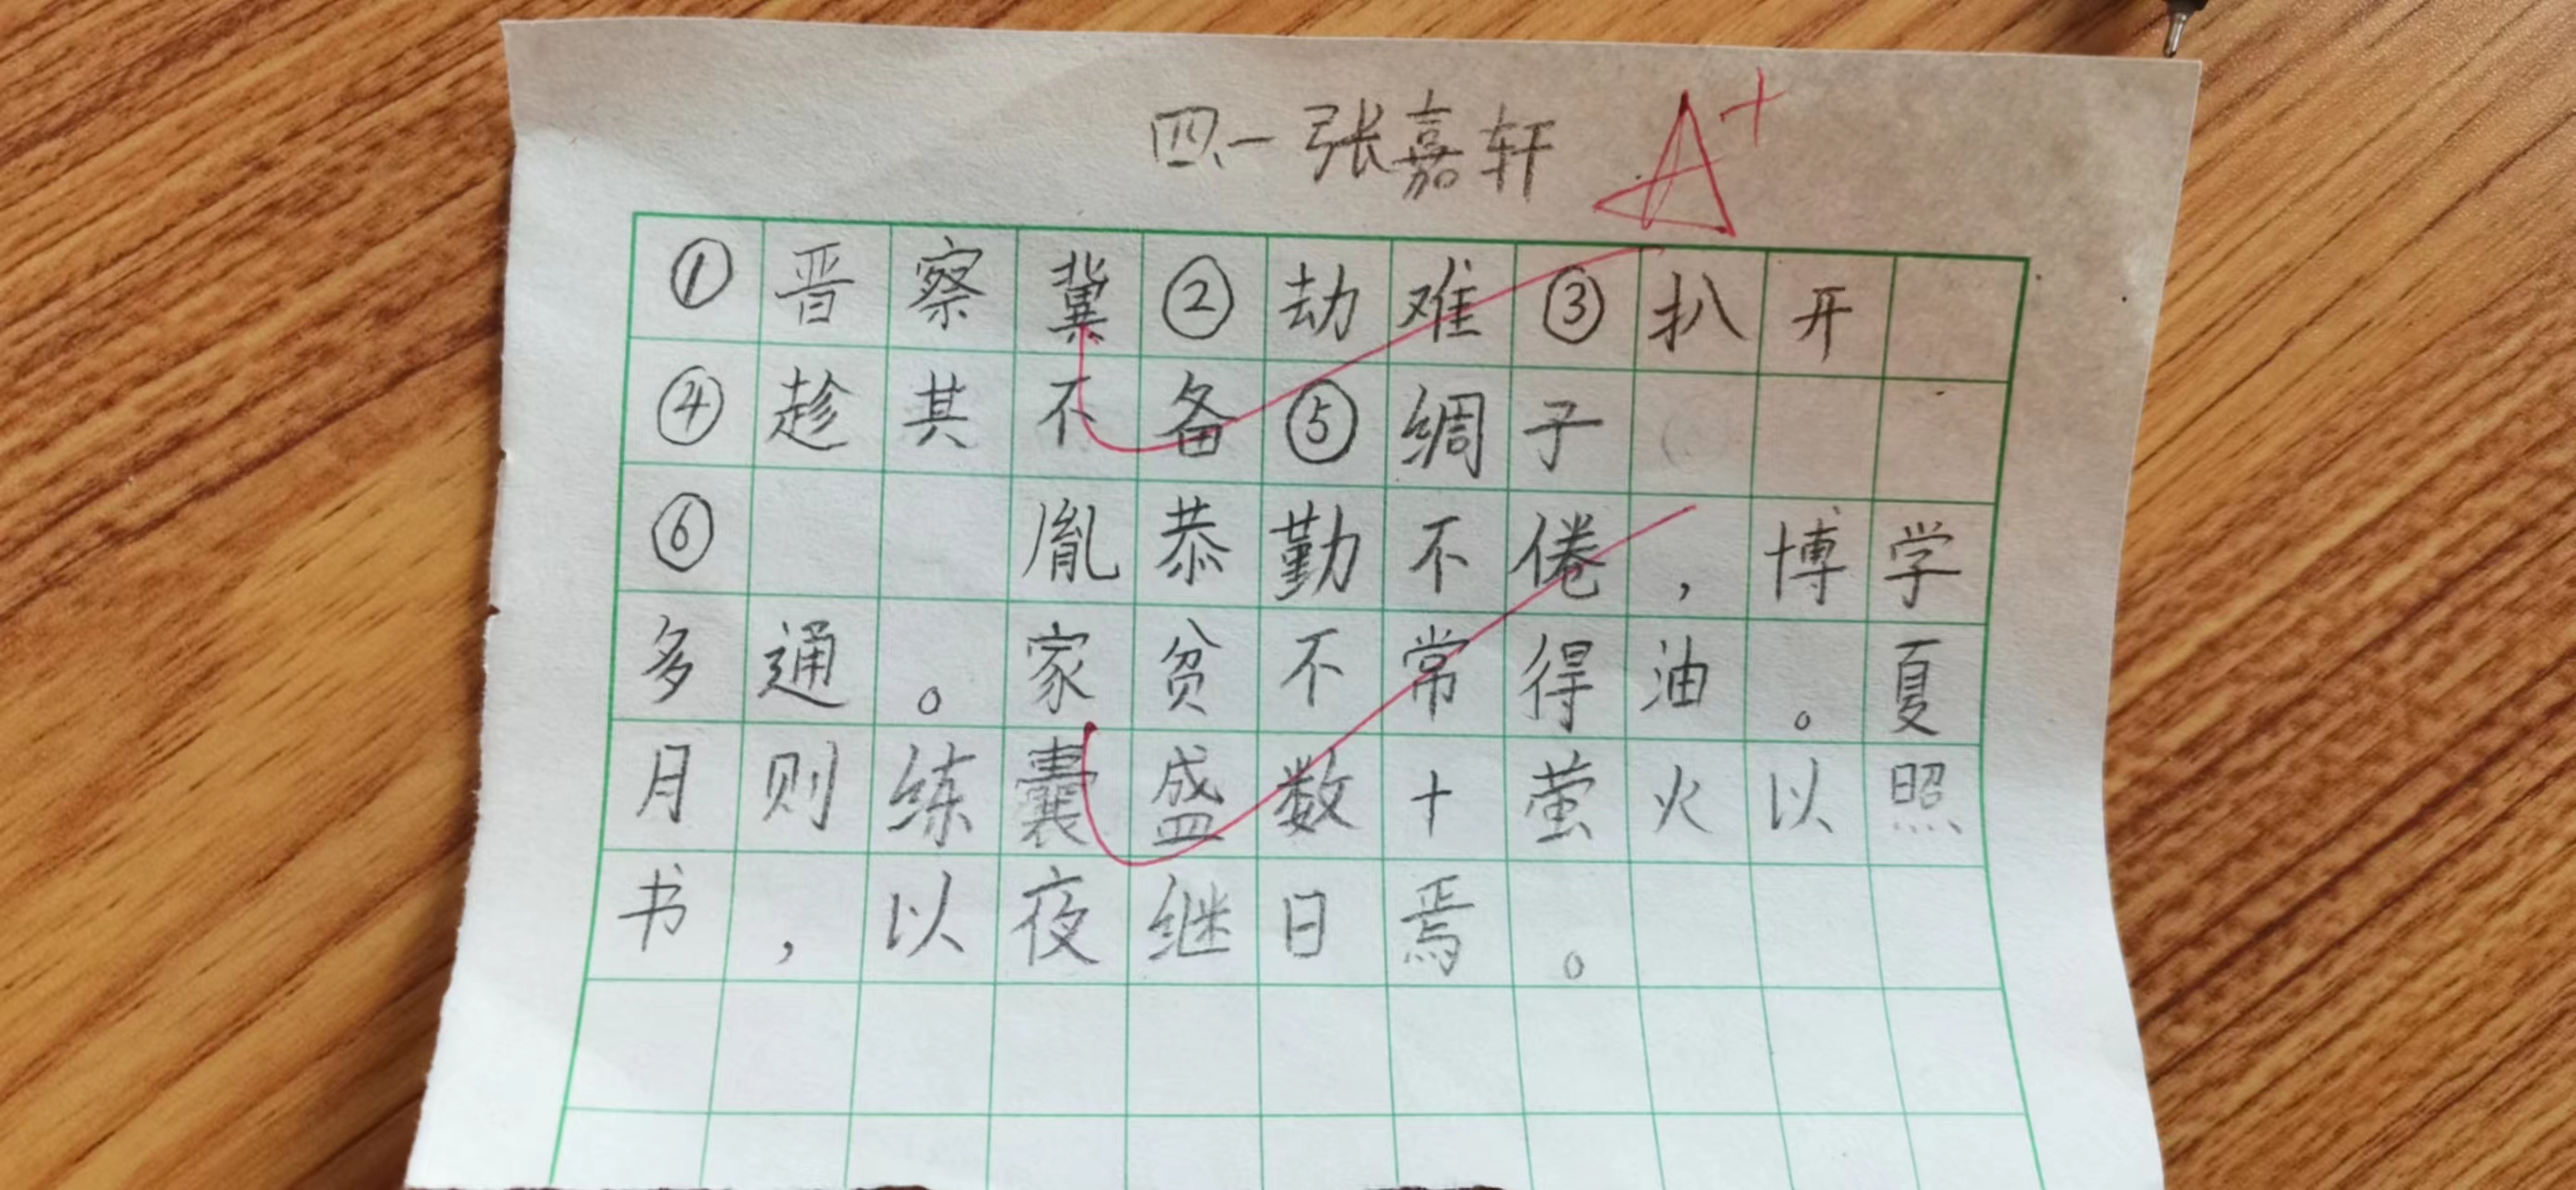 四、一 张嘉轩 A+
①晋察冀②劫难③扒开
④趁其不备⑤绸子
⑥ 胤恭勤不倦，博学
多通。家贫不常得油。夏
月则练囊盛数十萤火以照
书，以夜继日焉。